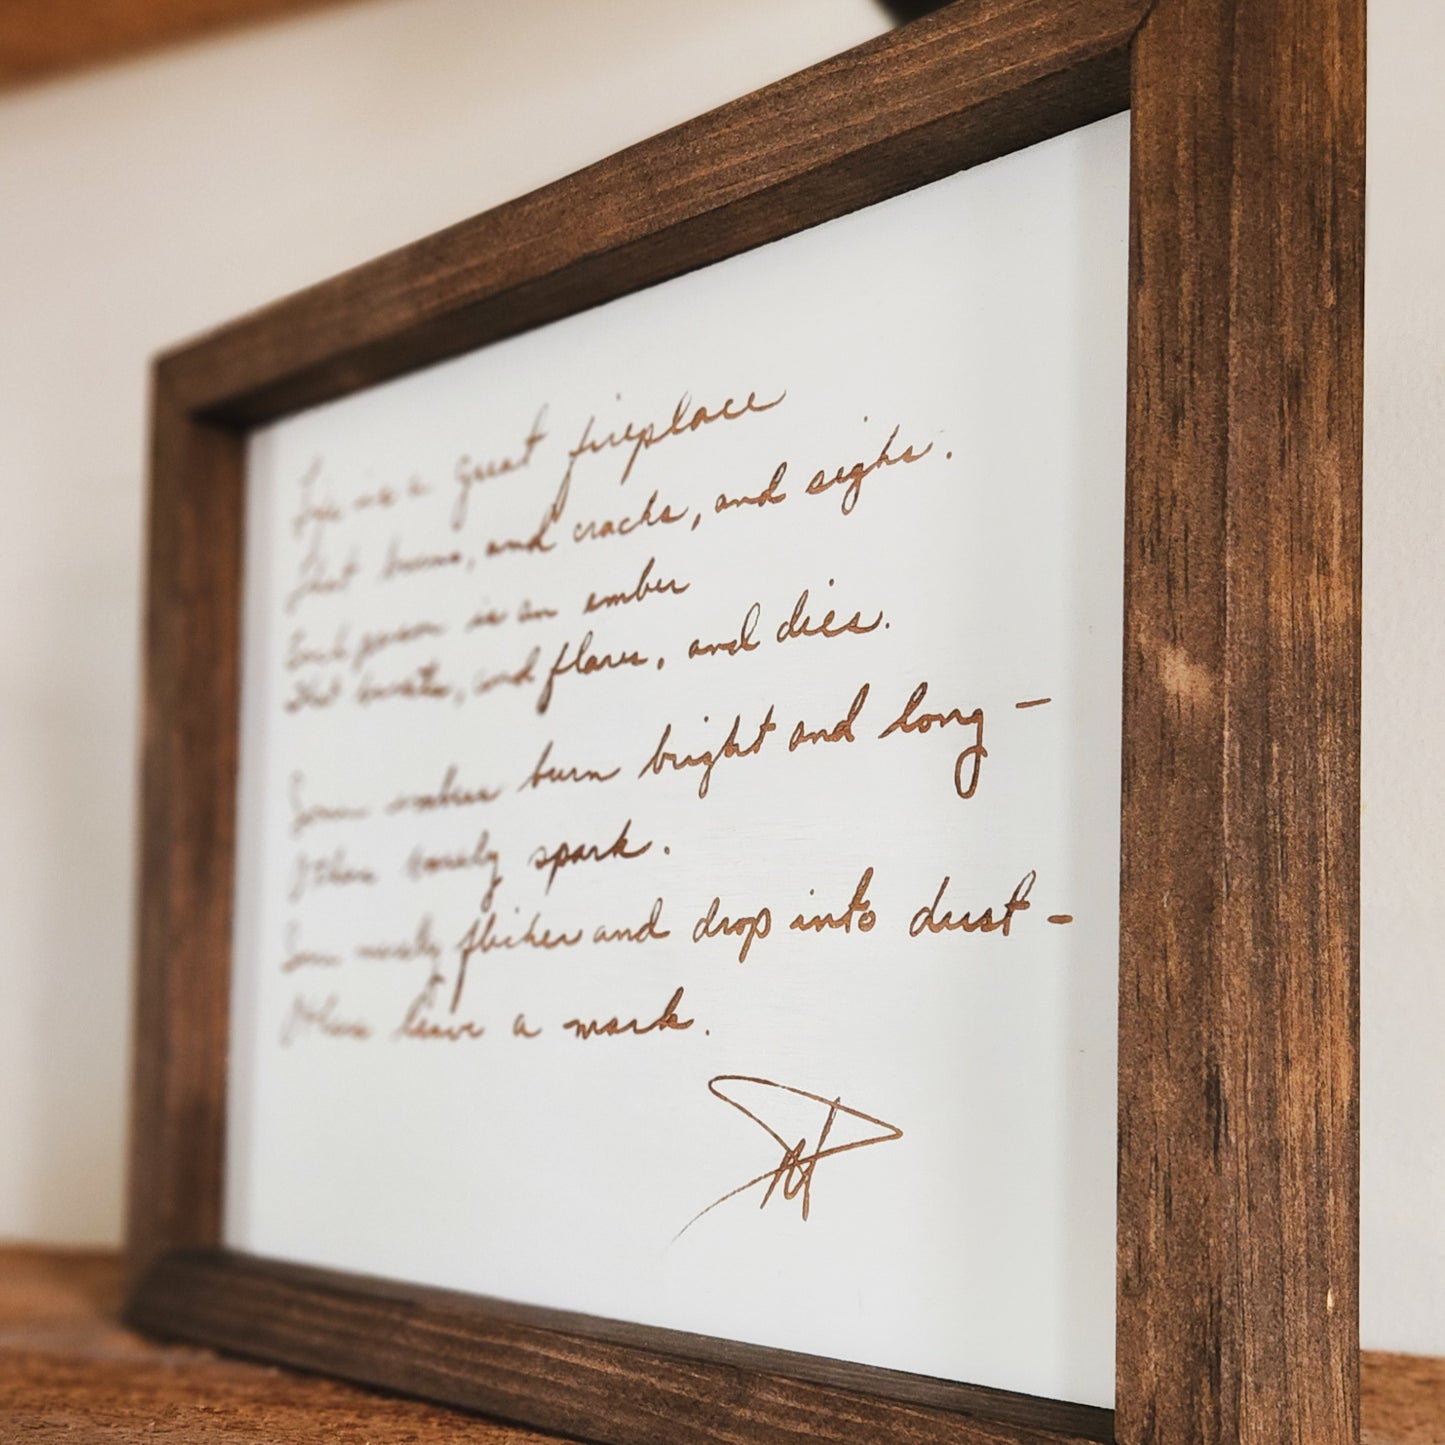 Life is a great fireplace
that burns, and cracks, and sighs.
Each person is an ember
that bursts, and flares, and dies.
Some embers burn bright and long —
Others barely spark.
Some merely flicker and drop into dust —
Others leave a mark.